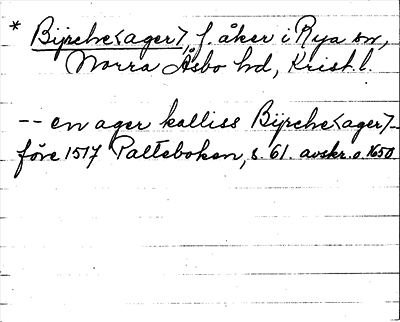 * Bijrche<ager>, f. åker i Rya sn,
Norra Åsbo hd, Krist. l.
-- en ager kalliss Bijrche<ager> --
före 1517 Palteboken, s. 61. avskr. o. 1650